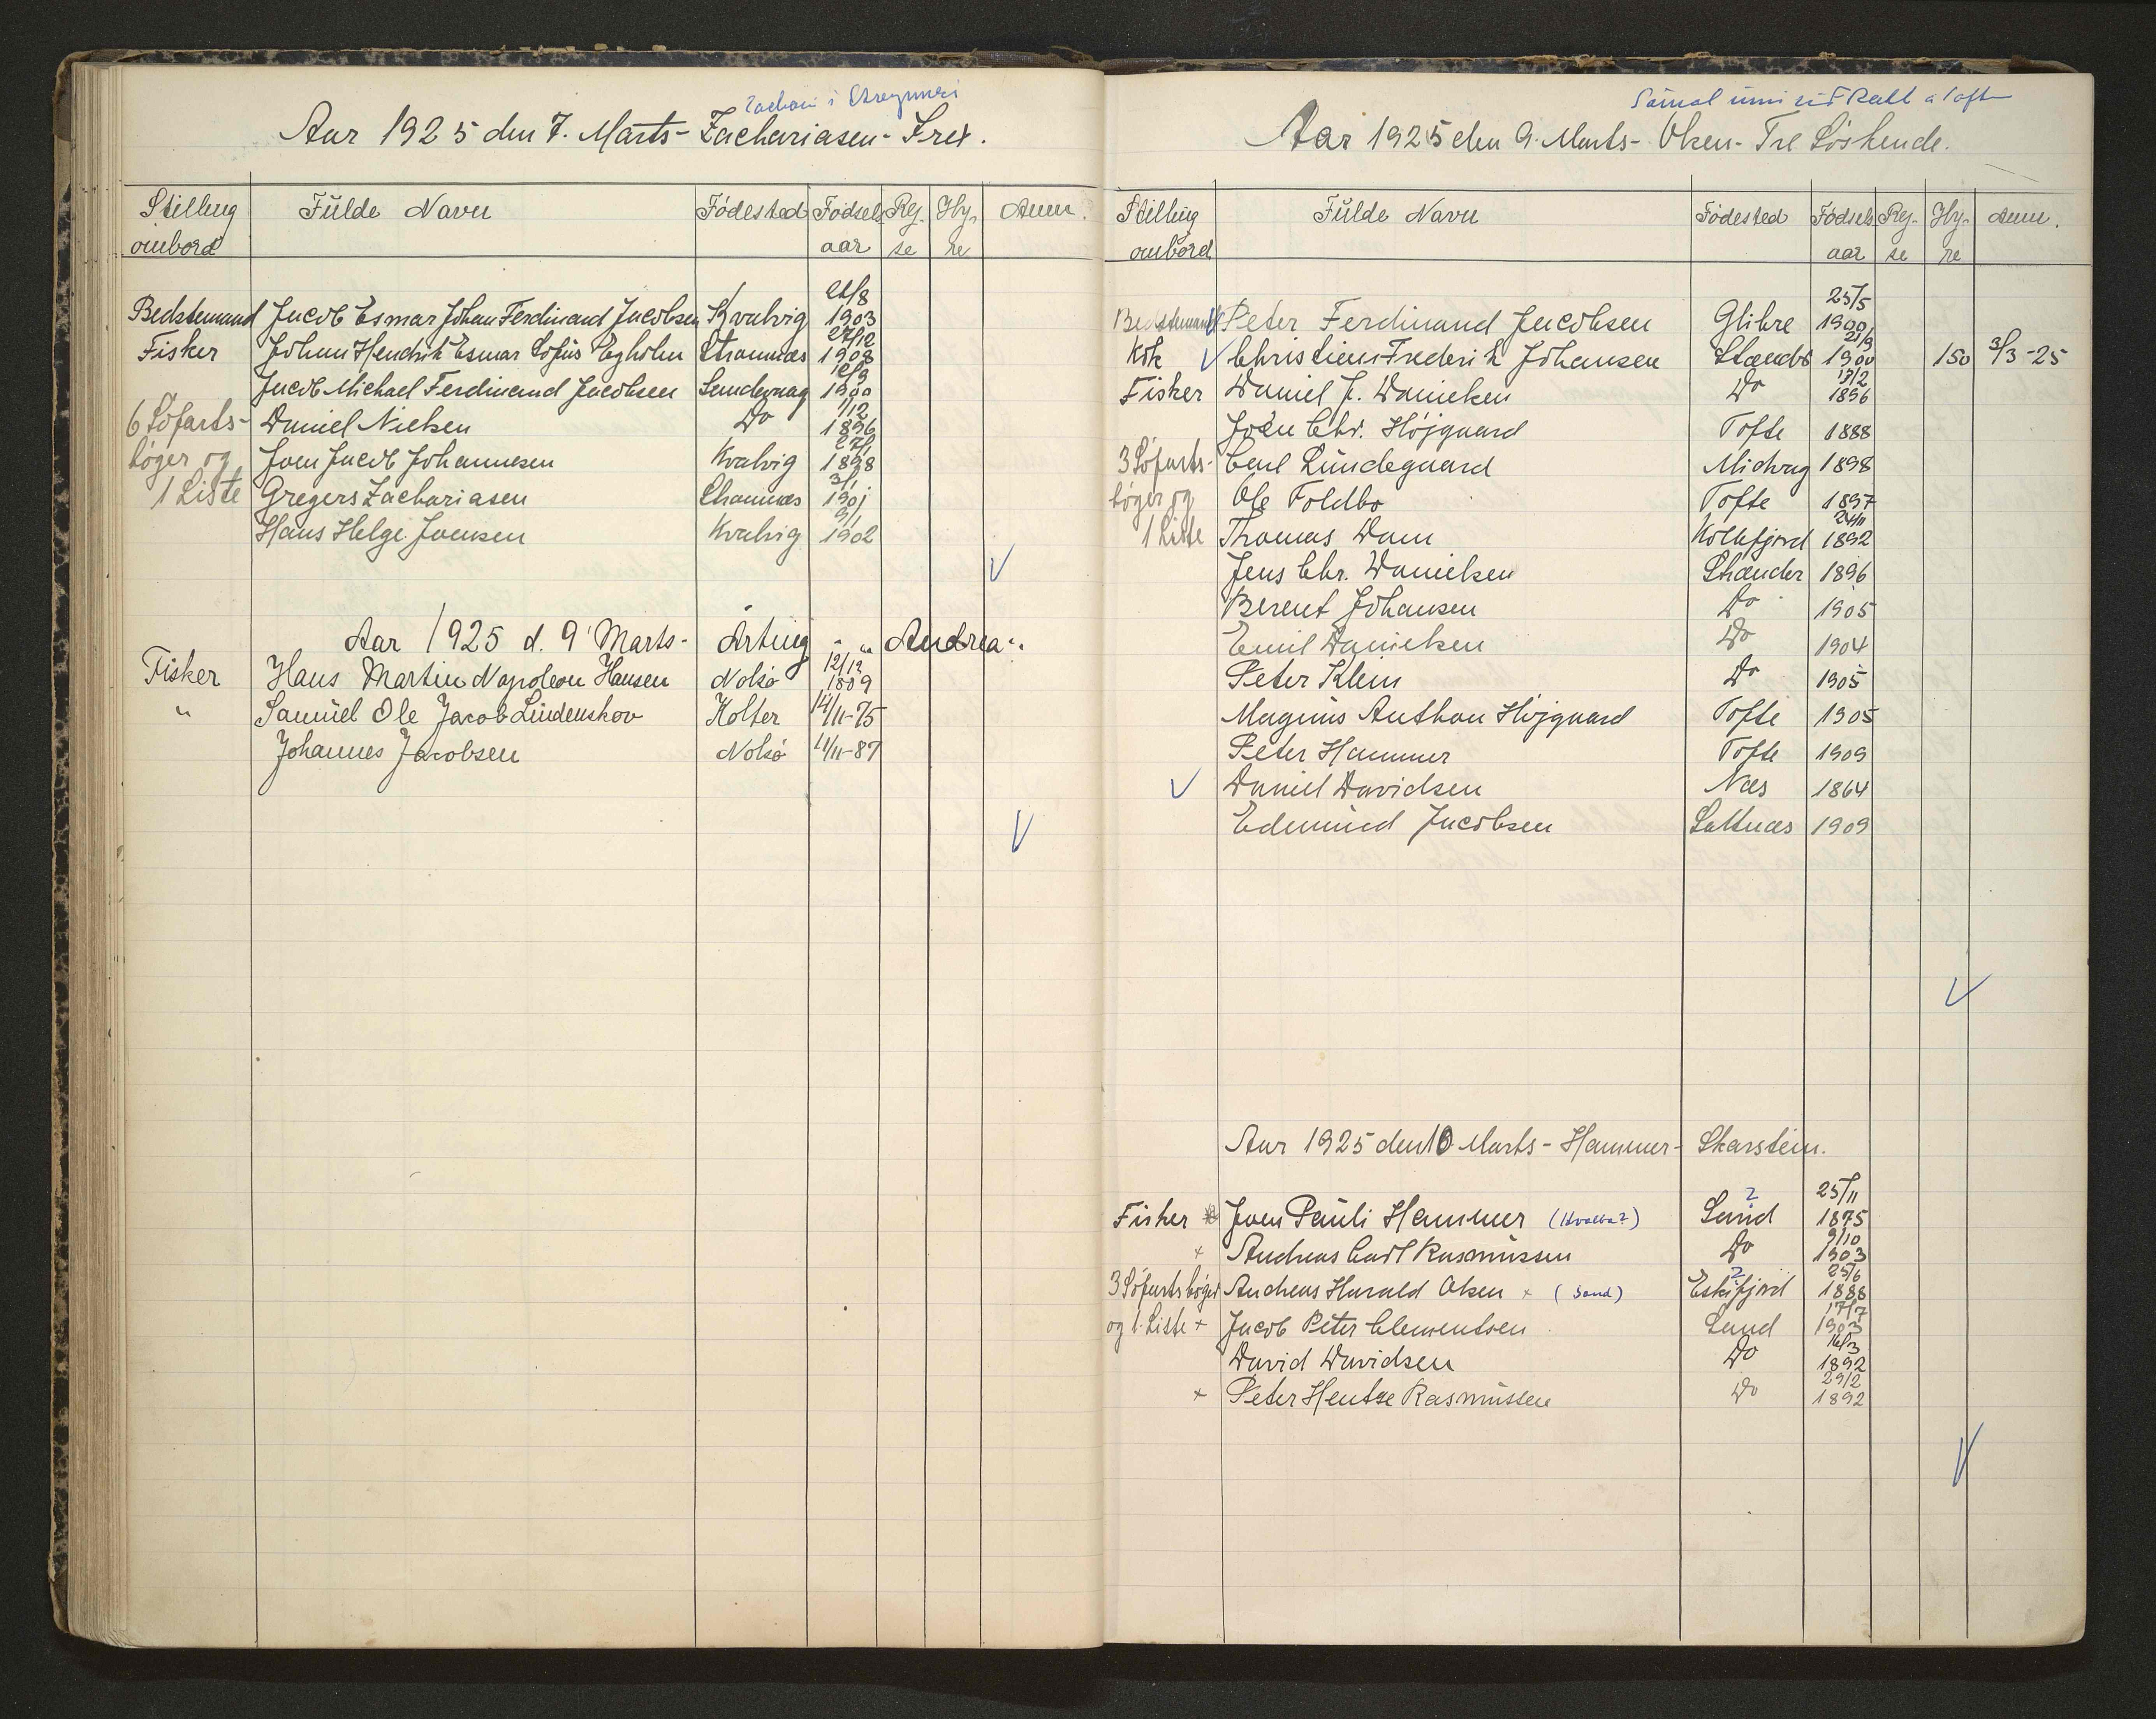 Aar 1925 den 7. Marts - Zachariasen - Frex.
Stilling ombord Fülde Navn Födested Födsels aar Rej- se Hy- re Anm.
Bedstemand Jacob Esmar Johan Ferdinand Jacobsen Kvalvig 1903
Fisker Johan Hendrik Esmar Sofüs Egholm Strømnæs 27/12 1908
Jacob Michael Ferdinand Jacobsen Sandevaag 1900
6 Söfarts- Daniel Nielsen Do 1/12 1896
böger og Joen Jacob Johannesen Kvalvig 1898
1 Liste Gregers Zachariasen Strømnæs 3/1 1901
Hans Helge Joensen Kvalvig 9/1 1902
Aar 1925 d. 9 Marts - Arting - " Andrea "
Fisker Hans Martin Napoleon Hansen Nolsö 12/12 1889
" Samüel Ole Jacob Lindenskov Kolter 14/11-75
Johannes Jacobsen Nolsö 11/11-87
Aar 1925 den 9. Marts - Olsen - Tre Söskende.
Stilling ombord Fülde Navn Födested Födsels aar Rej- se Hy- re Anm.
Bedstemand Peter Ferdinand Jacobsen Glibre 25/5 1900
Kok Christiern Frederik Johansen 21/9 1900 150 3/3-25
Fisker Daniel J. Danielsen Do 17/2 1896
Joen Chr. Höjgaard Tofte 1888
3 Söfarts- Carl Lündegaard Midvag 1898
böger og Ole Foldbo Tofte 1897
1 Liste Thomas Dam Kollefjord 24/11 1892
Jens Chr. Danielsen Skaander 1896
Berent Johansen Do 1905
Emil Danielsen Do 1904
Peter Klein Do 1905
Magnus Anthon Höjgaard Tofte 1905
Peter Hammer Tofte 1909
Daniel Davidsen Næs 1864
Edmünd Jacobsen Saltnæs 1909
Aar 1925 den 10 Marts - Hammer - Skarstein.
Fisker Joen Paüli Hammer (Hvalba?) Sand ? 25/11 1875
+ Andreas Carl Rasmüssen Do 9/10 1903
3 Söfartsböger Andreas Harald Olsen + (Sand) Eskifjord ? 25/6 1888
og 1 Liste + Jacob Peter Clementsen Sand 17/7 1903
David Davidsen Do 16/3 1892
+ Peter Hentze Rasmüssen Do 29/2 1892